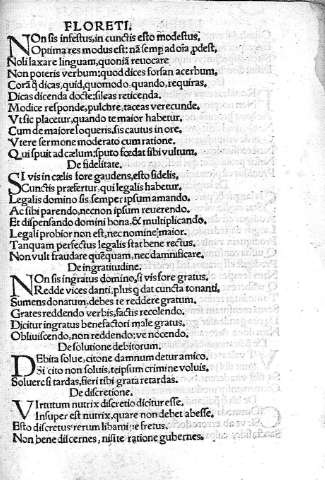 FLORETI.
NOn sis infestus, in cunctis esto modestus,
Optima res modus est: nã semp ad oĩa ꝓdest,
Noli laxare linguam, quoniã reuocare
Non poteris verbum: quod dices forsan acerbum,
Corã q̃ dicas, quid, quomodo. quando, requiras,
Dicas dicenda docte: sileas reticenda.
Modice responde, pulchre, taceas verecunde,
Vt sic placetur, quando te maior habetur,
Cum de maiore loqueris, sis cautus in ore,
Vtere sermone moderato cum ratione.
Qui spuit ad cælum: sputo fœdat sibi vultum.
De fidelitate.
SI vis in cœlis fore gaudens, esto fidelis,
Cunctis præfertur, qui legalis habetur,
Legalis domino sis, semper ipsum amando.
Ac sibi parendo, necnon ipsum reuerendo.
Et dispensando domini bona, & multiplicando.
Legali probior non est, nec nomine, maior.
Tanquam perfectus legalis stat bene rectus,
Non vult fraudare quẽquam, nec damnificare.
De ingratitudine.
NOn sis ingratus domino, si vis fore gratus,
Redde vices danti, plus q̃ dat cuncta tonanti,
Sumens donatum, debes te reddere gratum.
Grates reddendo verbis, factis recolendo.
Dicitur ingratus benefactori male gratus,
Obliuiscendo, non reddendo: ve nocendo.
De solutione debitorum.
DEbita solue, cito ne damnum detur amico.
Si cito non soluis, teipsum crimine voluis,
Soluere si tardas, fieri tibi grata retardas.
De discretione.
VIrtutum nutrix discretio dicitur esse.
Insuper est nutrix, quare non debet abesse.
Esto discretus: rerum libamine fretus.
Non bene discernes, nisi te ratione gubernes.